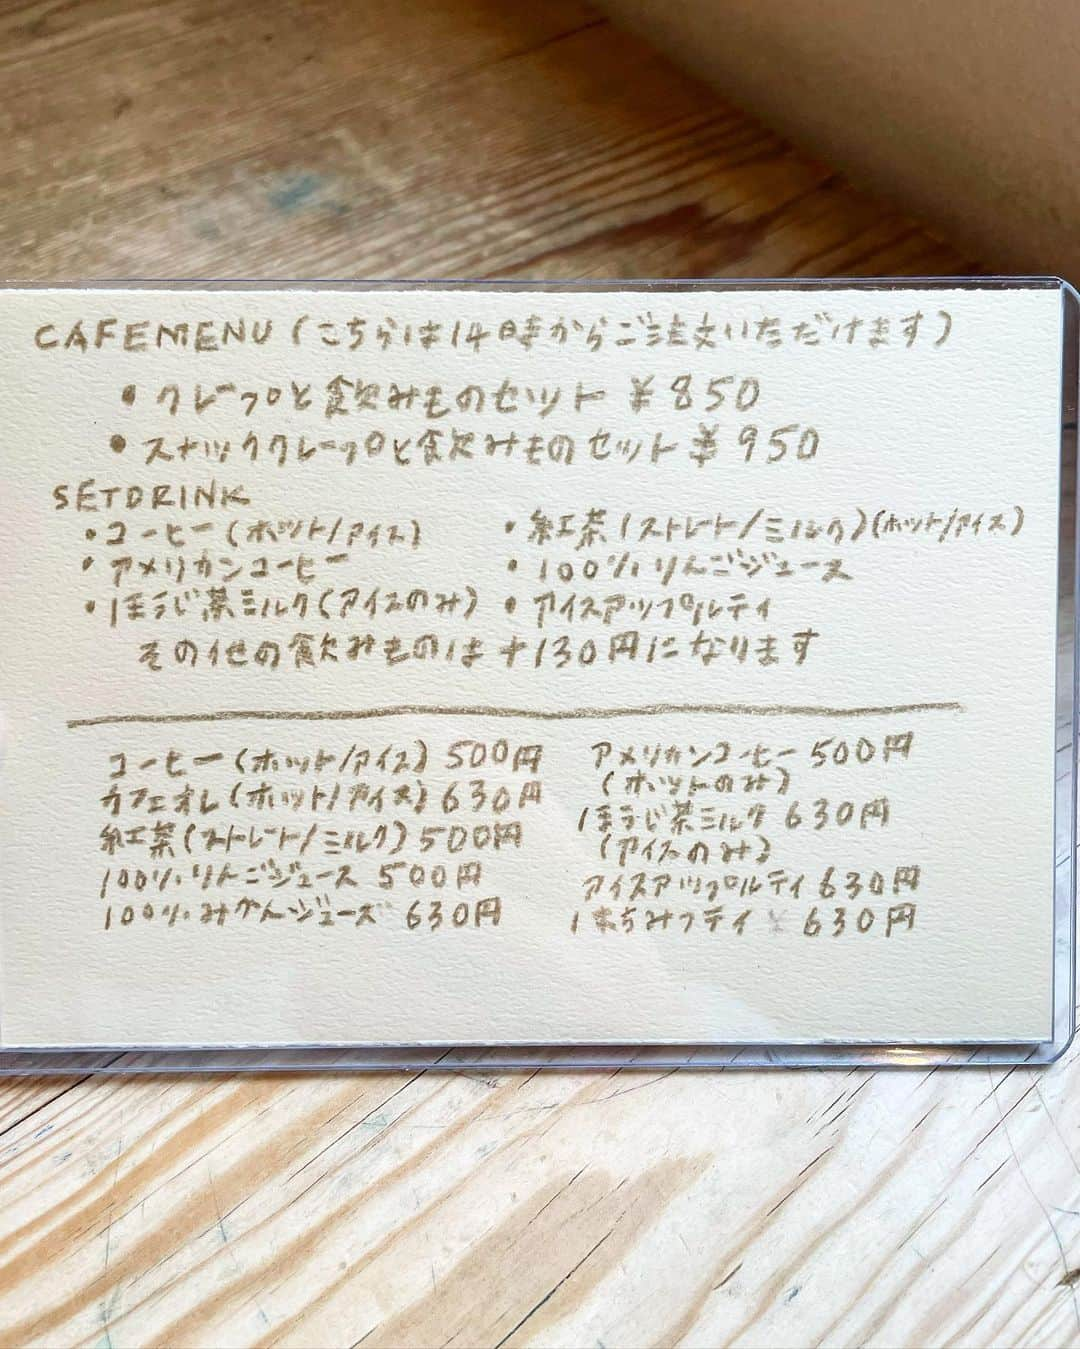 CAFEMENU (こちらは14時からご注文いただけます)
・クレープと飲みものセット ¥850
・スナッククレープと飲みものセット ¥950
SETDRINK
・コーヒー(ホット/アイス)
・紅茶(ストレート/ミルク)(ホット/アイス)
・アメリカンコーヒー
・100%りんごジュース
・ほうじ茶ミルク(アイスのみ)
・アイスアップルティ
その他の飲みものは+130円になります
コーヒー(ホット/アイス) 500円
カフェオレ(ホット/アイス) 630円
紅茶(ストレート/ミルク) 500円
100%りんごジュース 500円
100%みかんジュース 630円
アメリカンコーヒー 500円
(ホットのみ)
ほうじ茶ミルク 630円
(アイスのみ)
アイスアップルティ 630円
はちみつティ ¥ 630円